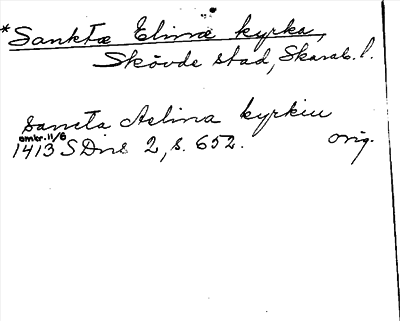 *Sanktæ Elinæ kyrka,
Skövde stad, Skarab. l.
sancta Aelina kyrkiu
omkr. 11/6
1413 SDns 2, s. 652. orig.